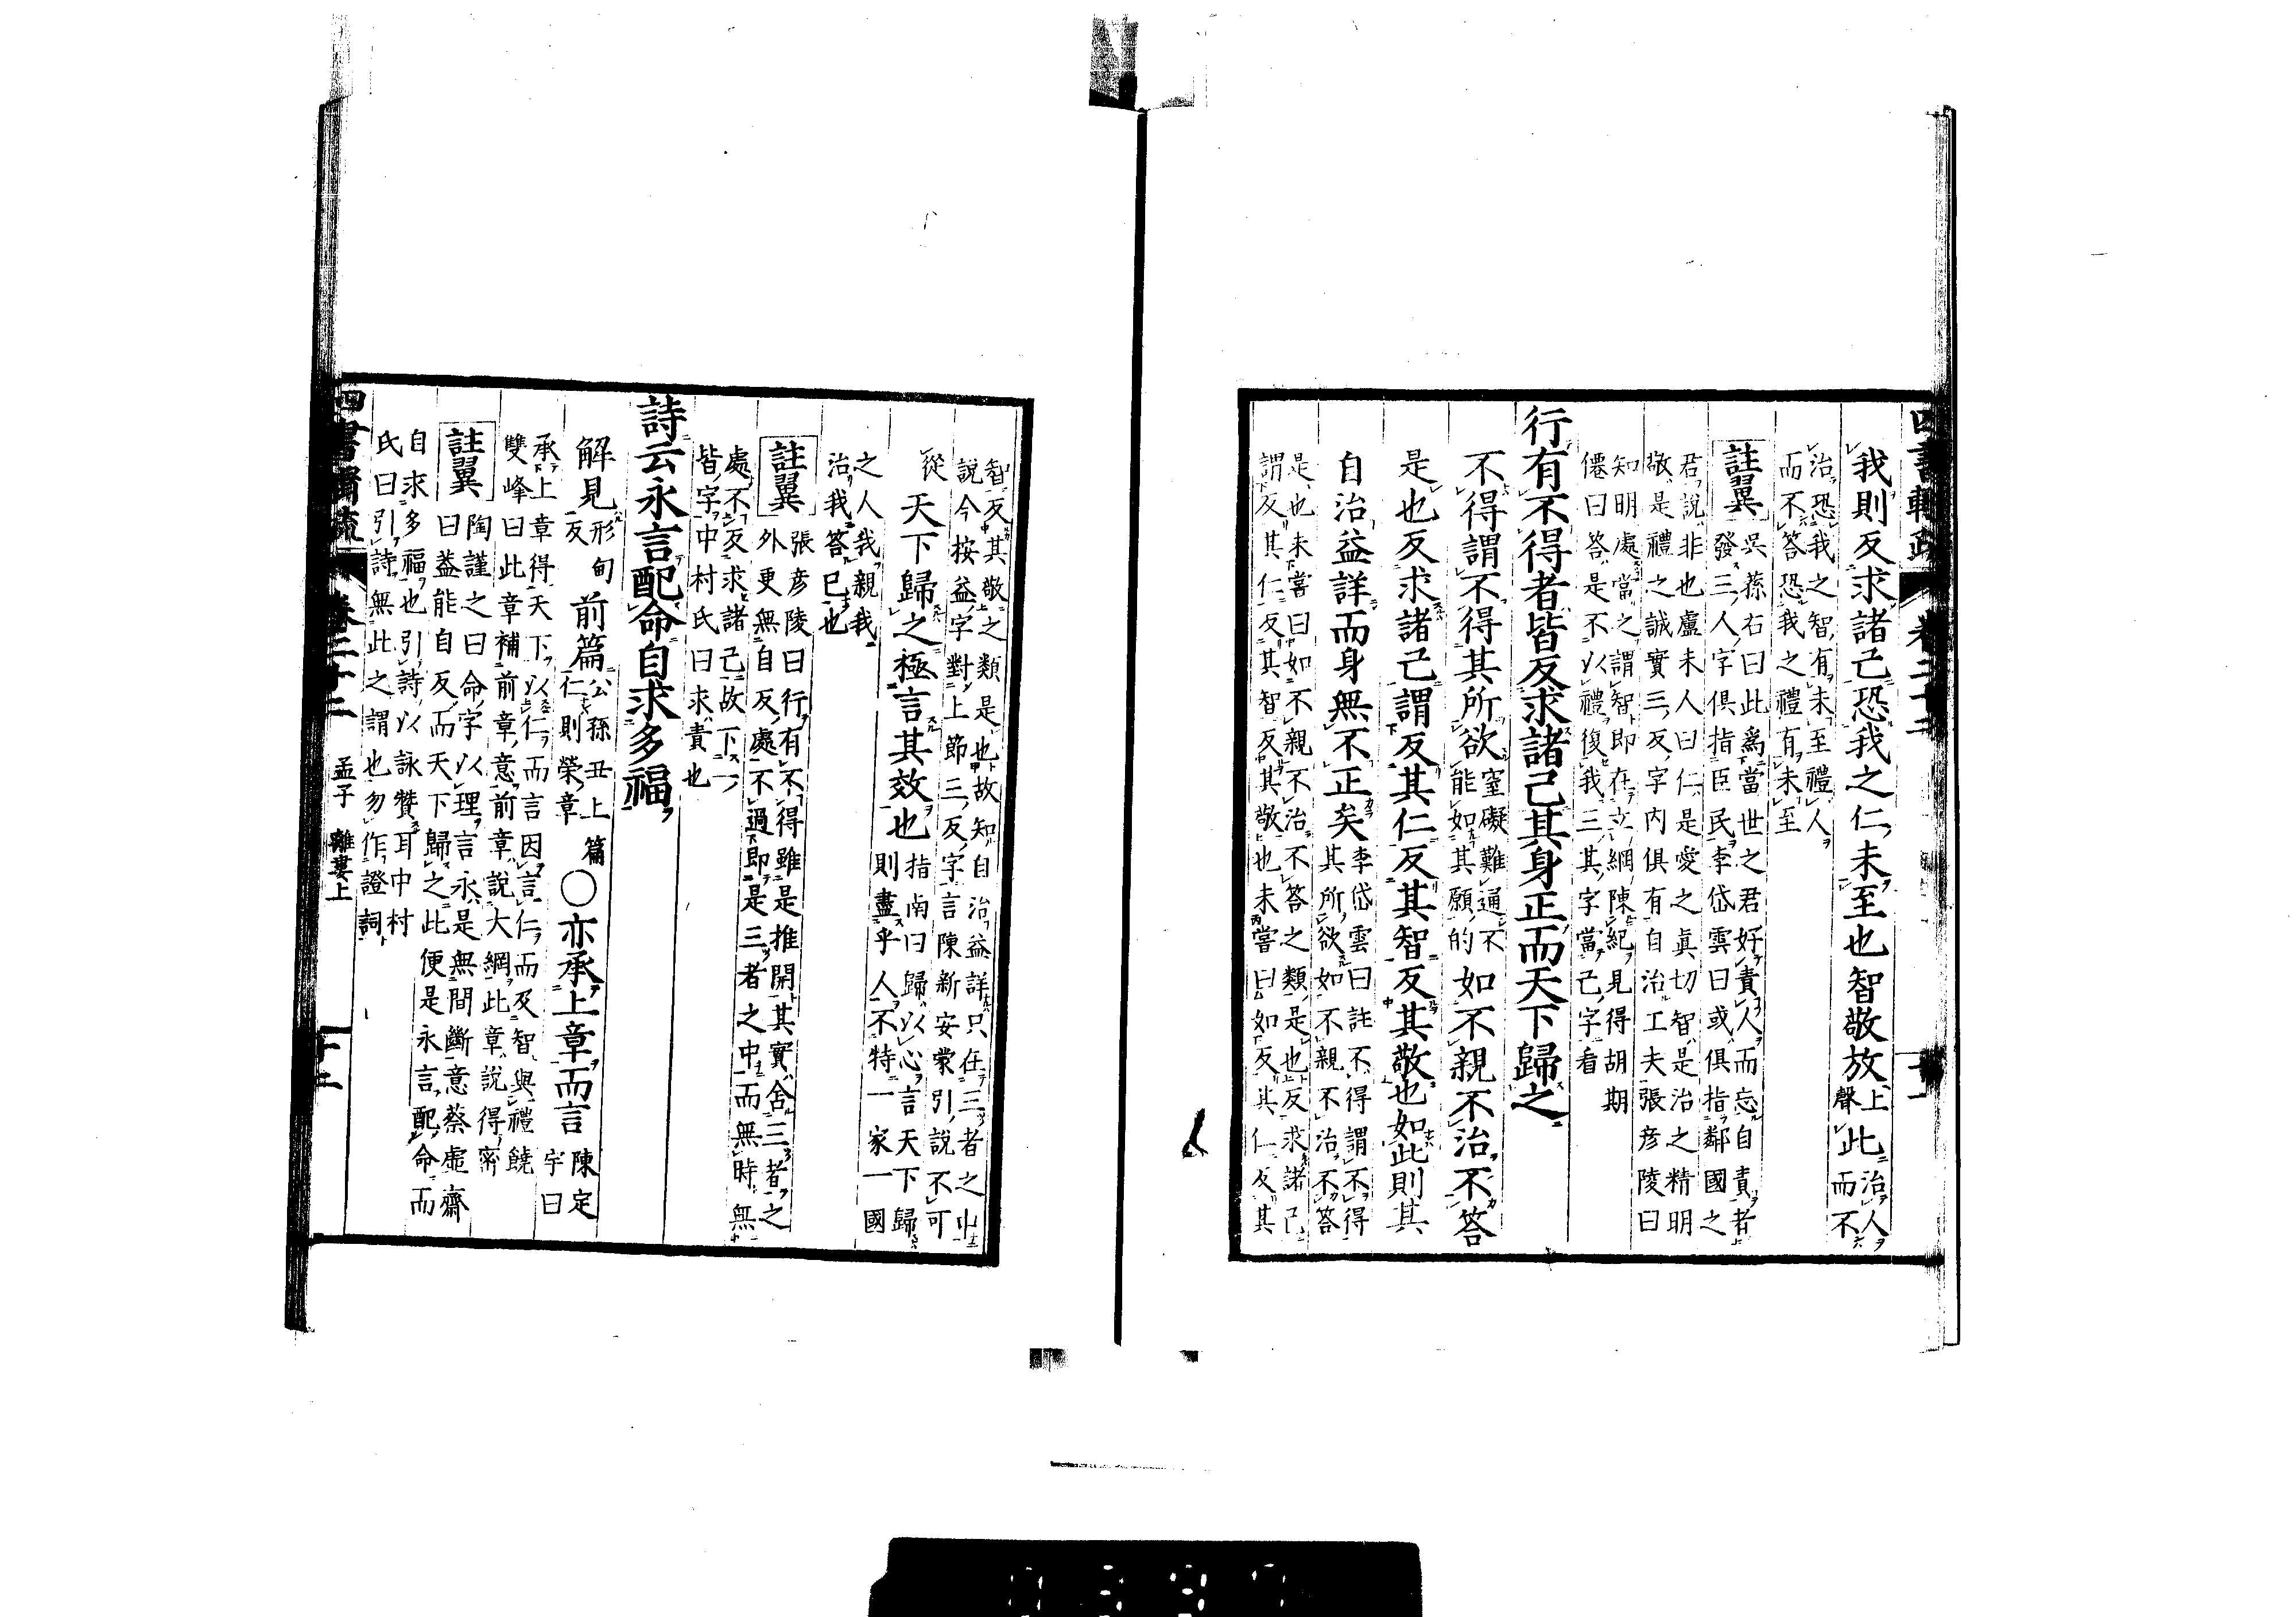 我則反求諸己恐我之仁未至也智敬放上聲此治人而不
治恐我之智有未至禮人
而不答恐我之禮有未至
註翼
吳蓀右曰此爲當世之君好責人而忘自責者
發三人字俱指臣民李岱雲曰或俱指鄰國之
君說非也盧未人曰仁是愛之眞切智是治之精明
敬是禮之誠實三反字內俱有自治工夫張彦陵曰
知明處當之謂智即在立綱陳紀見得胡期
僊曰答是不以禮復我三其字當己字看
行有不得者皆反求諸己其身正而天下歸之
不得謂不得其所欲窒礙難通不
能如其願的如不親不治不答
是也反求諸己謂反其仁反其智反其敬也如此則其
自治益詳而身無不正矣李岱雲曰註不得謂不得
其所欲如不親不治不答
是也未嘗曰如不親不治不答之類是也反求諸己
謂反其仁反其智反其敬也未嘗曰如反其仁反其
智反其敬之類是也故知自治益詳只在三者之中
說今按益字對上節三反字言陳新安蒙引說不可
從
天下歸之極言其效也指南曰歸以心言天下歸
則盡乎人不特一家一國
之人我親我
治我答已也
註翼
張彦陵曰行有不得雖是推開其實舍三者之
外更無自反處不過即是三者之中而無時無
處不反求諸己故下一
皆字中村氏曰求責也
詩云永言配命自求多福
解見形甸反前篇公孫丑上篇
仁則榮章
○亦承上章而言陳定宇曰
承上章得天下以仁而言因言仁而及智與禮饒
雙峰曰此章補前章意前章說大綱此章說得密
註翼
陶謹之曰命字以理言永是無間斷意蔡虛齋
曰蓋能自反而天下歸之此便是永言配命而
自求多福也引詩以詠贊耳中村
氏曰引詩無此之謂也勿作證詞
卷二十二
孟子 離婁上
十二